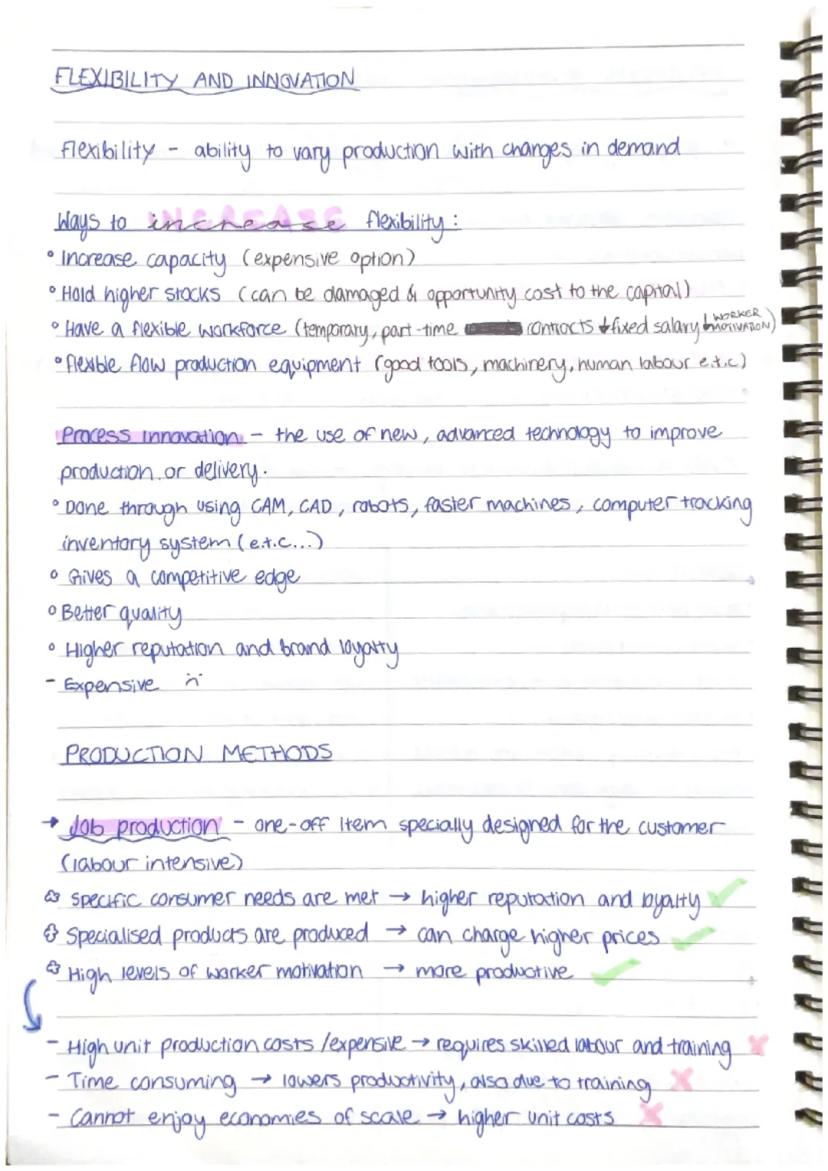 FLEXIBILITY AND INNOVATION
Flexibility - ability to vary production with changes in demand
Ways to increase flexibility :
° Increase capacity (expensive option)
° Hold higher stocks (can be damaged & opportunity cost to the capital)
° Have a flexible workforce (temporary, part-time contracts ↓fixed salary ↓WORKER MOTIVATION)
° flexible flow production equipment (good tools, machinery, human labour e.t.c)
Process innovation - the use of new, advanced technology to improve
production or delivery.
° Done through using CAM, CAD, robots, faster machines, computer tracking
inventory system (e.t.c...)
° Gives a competitive edge
° Better quality
° Higher reputation and brand loyalty
- Expensive
PRODUCTION METHODS
→ Job production - one-off item specially designed for the customer
(labour intensive)
Specific consumer needs are met → higher reputation and loyalty ✓
Specialised products are produced → can charge higher prices ✓
High levels of worker motivation → more productive ✓
- High unit production costs /expensive → requires skilled labour and training ✗
- Time consuming → lowers productivity, also due to training ✗
- Cannot enjoy economies of scale → higher unit costs ✗